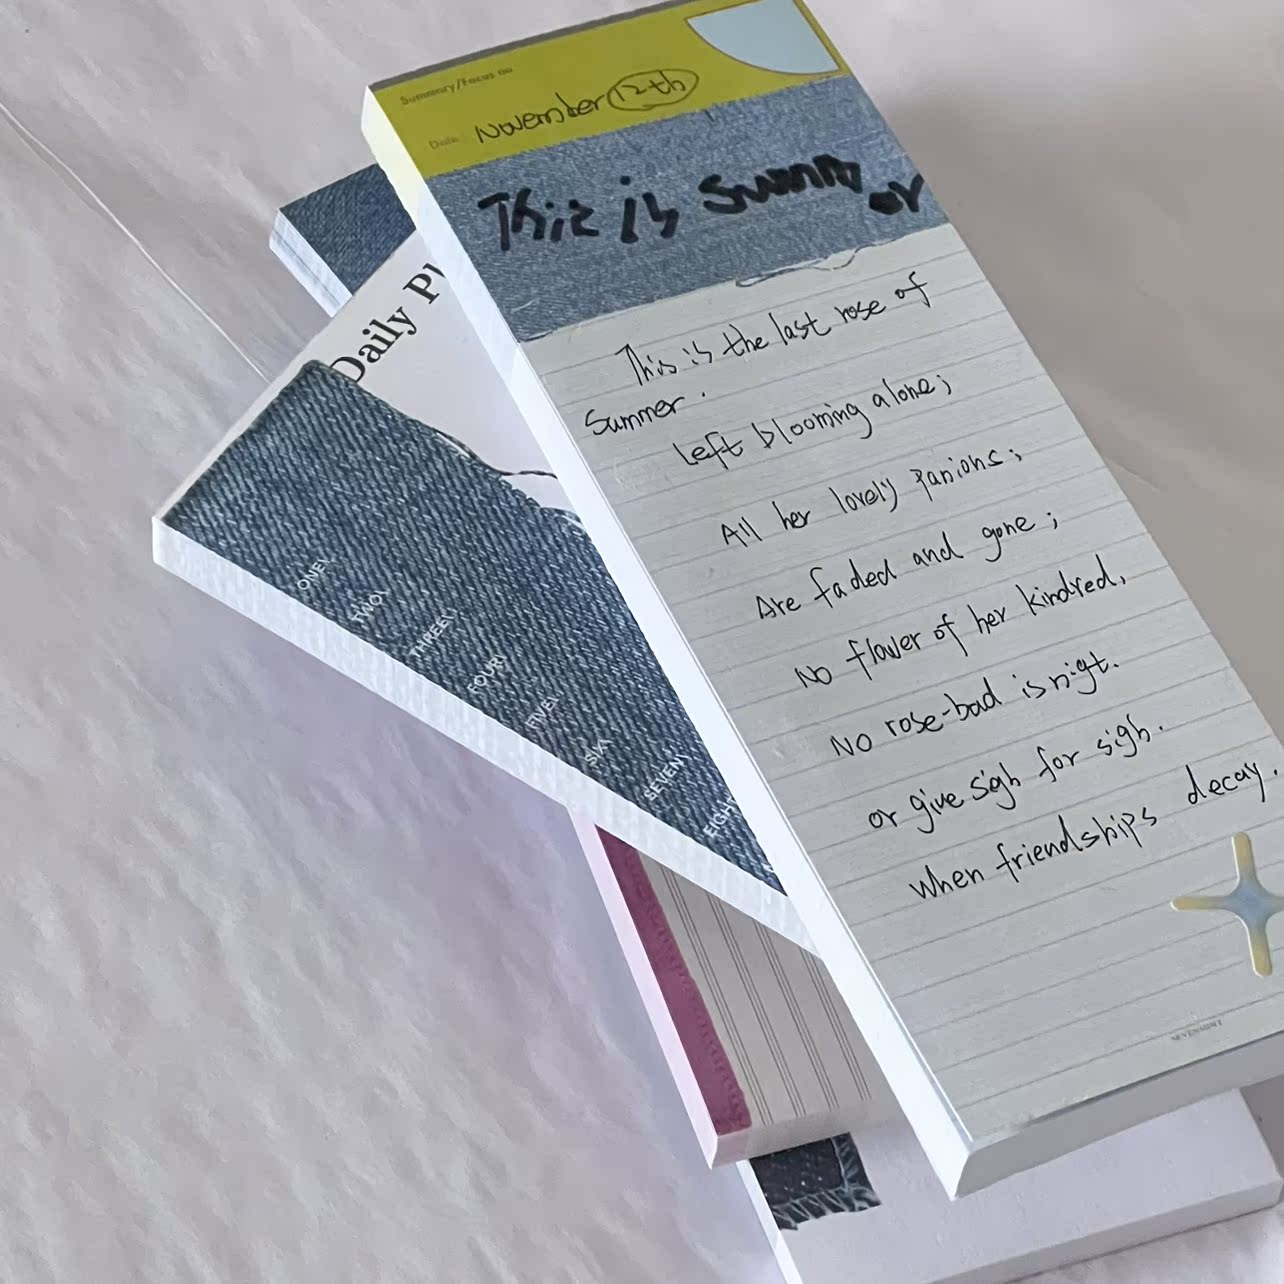 Summary/Focus on
Date November 12th
This is Summ
er
This is the last rose of
Summer.
Left blooming alone;
All her lovely panions;
Are faded and gone;
No flower of her kindred,
No rose-bad is nigt.
or give sigh for sigh.
when friendships decay.
SEVENMINT
Daily Pl
ONE\
TWO\
THREE\
FOUR\
FIVE\
SIX\
SEVEN\
EIGHT